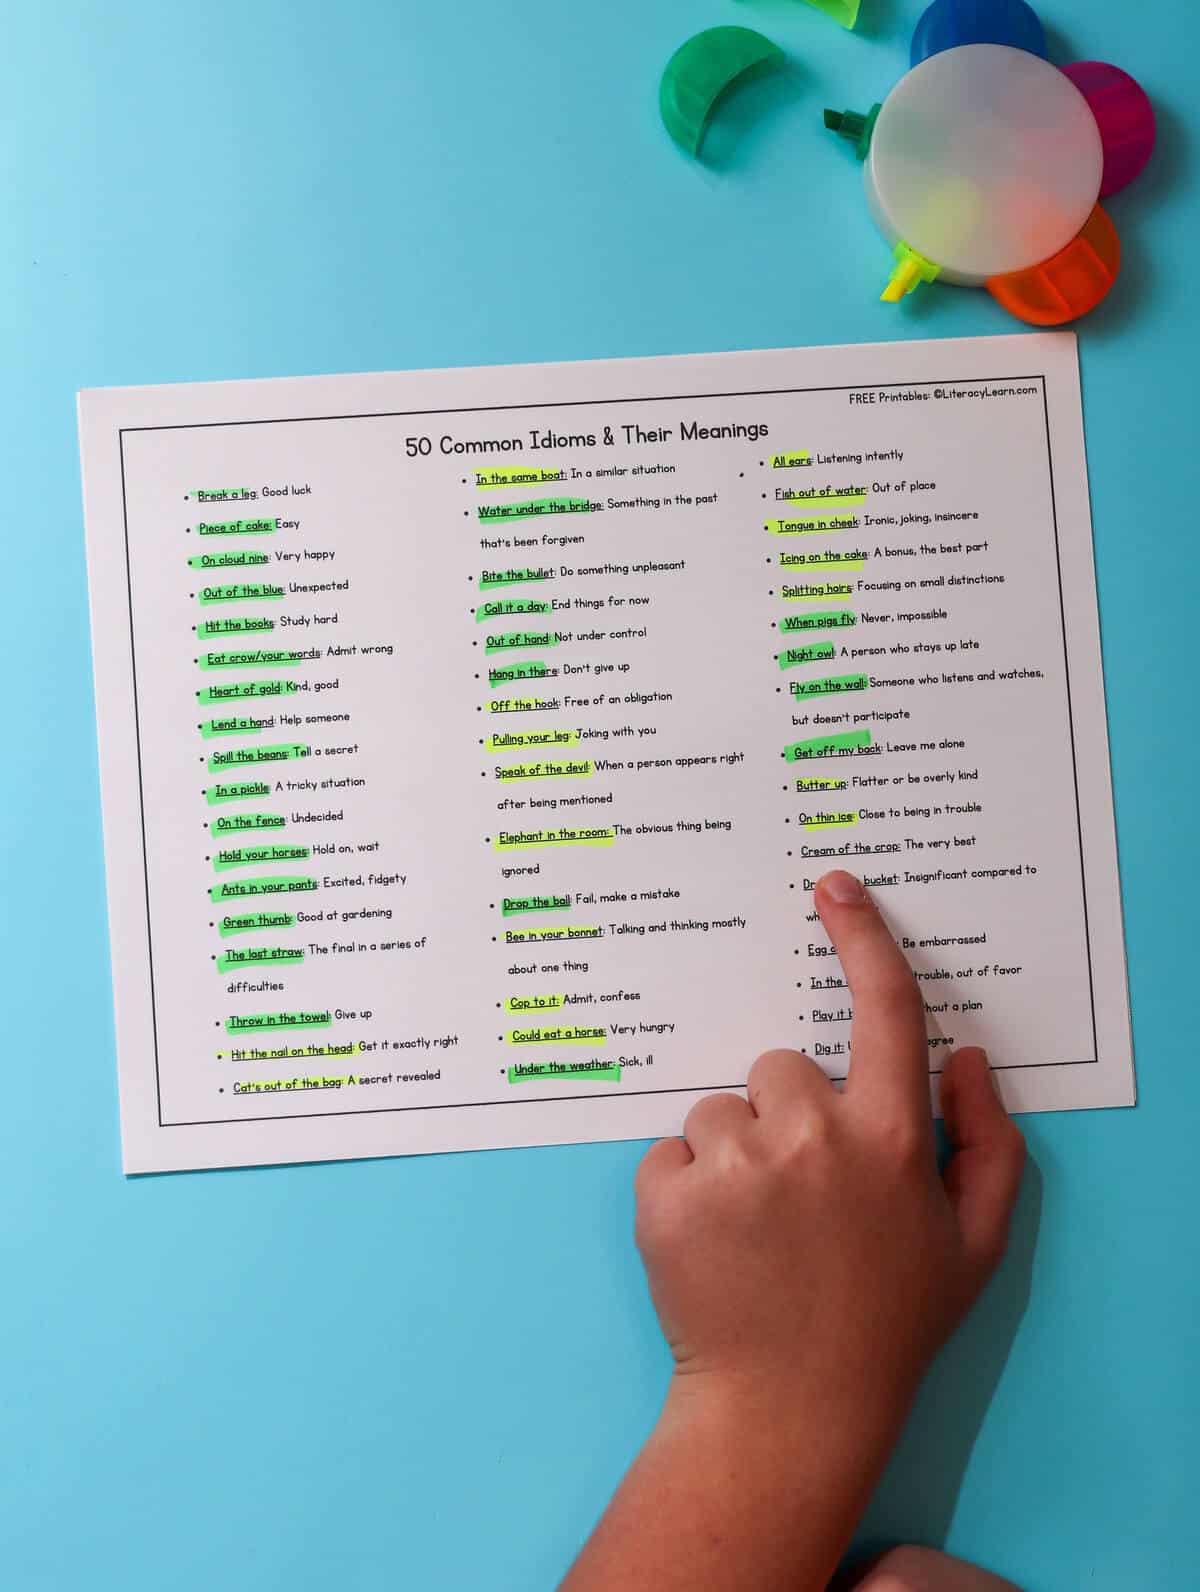 FREE Printables: ©LiteracyLearn.com
50 Common Idioms & Their Meanings
Break a leg: Good luck
Piece of cake: Easy
On cloud nine: Very happy
Out of the blue: Unexpected
Hit the books: Study hard
Eat crow/your words: Admit wrong
Heart of gold: Kind, good
Lend a hand: Help someone
Spill the beans: Tell a secret
In a pickle: A tricky situation
On the fence: Undecided
Hold your horses: Hold on, wait
Ants in your pants: Excited, fidgety
Green thumb: Good at gardening
The last straw: The final in a series of
difficulties
Throw in the towel: Give up
Hit the nail on the head: Get it exactly right
Cat's out of the bag: A secret revealed
In the same boat: In a similar situation
Water under the bridge: Something in the past
that's been forgiven
Bite the bullet: Do something unpleasant
Call it a day: End things for now
Out of hand: Not under control
Hang in there: Don't give up
Off the hook: Free of an obligation
Pulling your leg: Joking with you
Speak of the devil: When a person appears right
after being mentioned
Elephant in the room: The obvious thing being
ignored
Drop the ball: Fail, make a mistake
Bee in your bonnet: Talking and thinking mostly
about one thing
Cop to it: Admit, confess
Could eat a horse: Very hungry
Under the weather: Sick, ill
All ears: Listening intently
Fish out of water: Out of place
Tongue in cheek: Ironic, joking, insincere
Icing on the cake: A bonus, the best part
Splitting hairs: Focusing on small distinctions
When pigs fly: Never, impossible
Night owl: A person who stays up late
Fly on the wall: Someone who listens and watches,
but doesn't participate
Get off my back: Leave me alone
Butter up: Flatter or be overly kind
On thin ice: Close to being in trouble
Cream of the crop: The very best
bucket: Insignificant compared to
Egg Be embarrassed
In the trouble, out of favor
Play it a plan
Dig it: